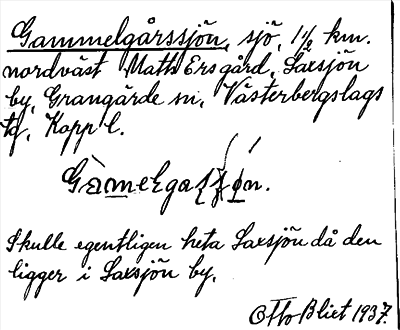 Gammelgårssjön, sjö, 1½ km.
nordväst Matts Ersgård, Saxsjön
by, Grangärde sn, Västerbergslags
tg, Kopp l.
Skulle egentligen heta Saxsjön då den
ligger i Saxsjön by.
Otto Blixt 1937.